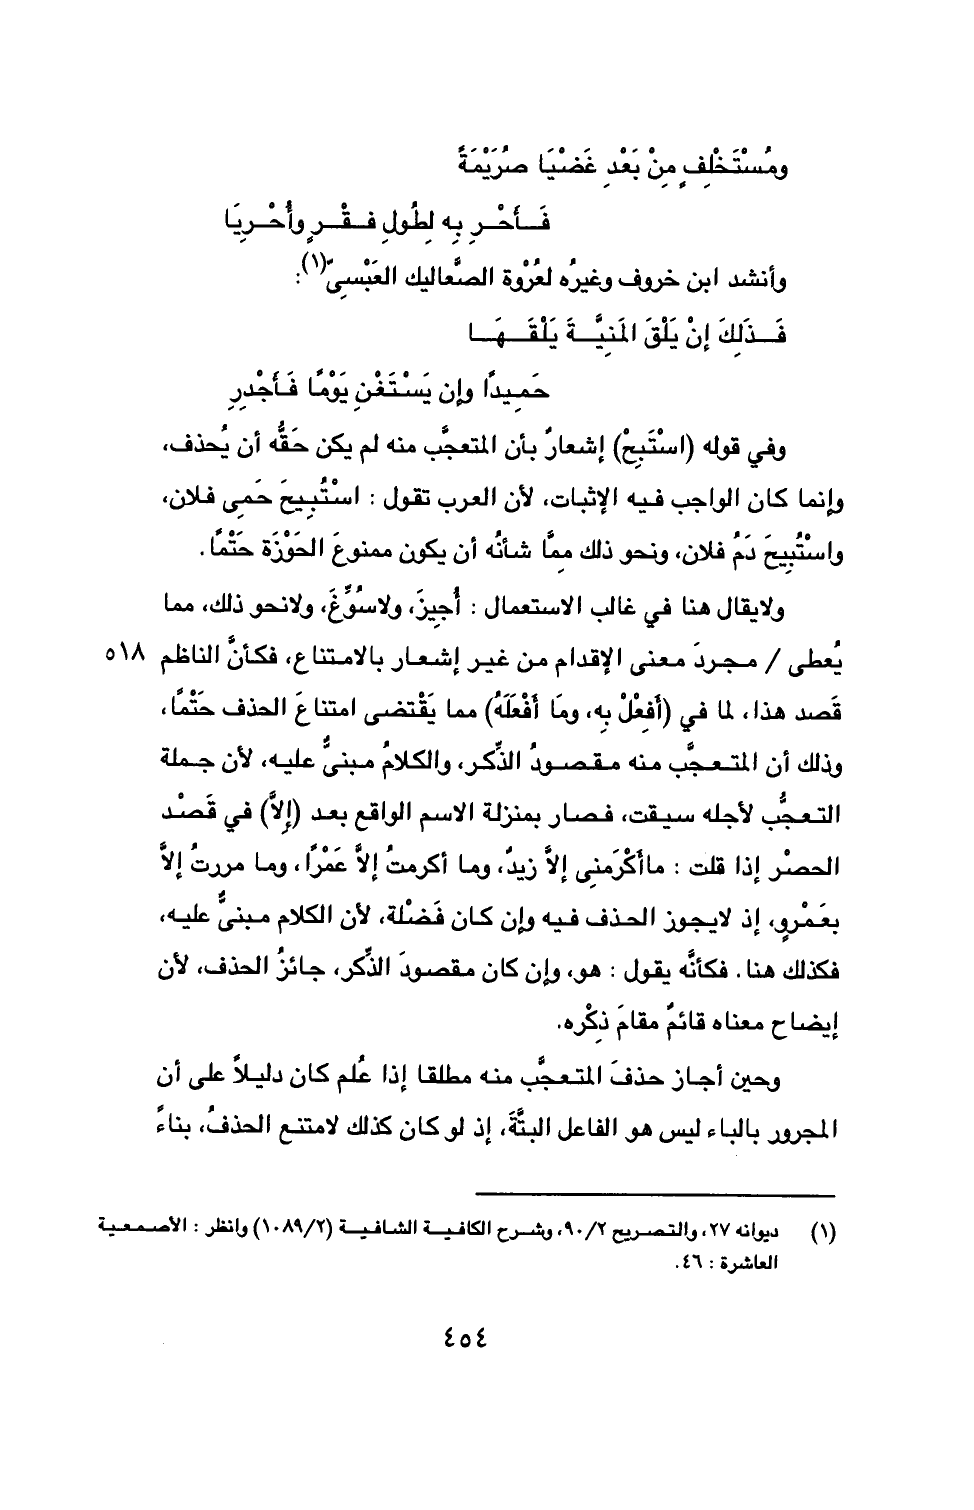 ومُسْتَخْلِفٍ مِنْ بَعْدِ غَضْيَا صُرَيْمَةً
فَـأَحْـرِ بِه لِطُولِ فـقْـرٍ وأُحْـرِيَا
وأنشد ابن خروف وغيرُه لعُرْوة الصَّعاليك العَبْسِيّ(١):
فَـذَلِكَ إِنْ يَلْقَ المَنِيَّـةَ يَلْقَـهَـا
حَمِيدًا وإن يَسْتَغْنِ يَوْمًا فَأَجْدِرِ
وفي قوله (اسْتَبِحْ) إشعارٌ بأن المتعجَّب منه لم يكن حَقُّه أن يُحذف،
وإنما كان الواجب فيه الإثبات، لأن العرب تقول : اسْتُبِيحَ حَمِى فلان،
واسْتُبِيحَ دَمُ فلان، ونحو ذلك مِمَّا شأنُه أن يكون ممنوعَ الحَوْزَة حَتْمًا.
ولايقال هنا في غالب الاستعمال : أُجِيزَ، ولاسُوِّغَ، ولانحو ذلك، مما
يُعطى / مجردَ معنى الإقدام من غير إشعار بالامتناع، فكأنَّ الناظم ٥١٨
قَصد هذا، لما في (أَفعِلْ بِه، ومَا أَفْعَلَهُ) مما يَقْتضى امتناعَ الحذف حَتْمًا،
وذلك أن المتعجَّب منه مقصودُ الذِّكر، والكلامُ مبنىٌّ عليه، لأن جملة
التعجُّب لأجله سيقت، فصار بمنزلة الاسم الواقع بعد (إِلاَّ) في قَصْد
الحصْر إذا قلت : ماأَكْرَمنِى إِلاَّ زيدٌ، وما أكرمتُ إِلاَّ عَمْرًا، وما مررتُ إِلاَّ
بعَمْروٍ، إذ لايجوز الحذف فيه وإن كان فَضْلة، لأن الكلام مبنىٌّ عليه،
فكذلك هنا. فكأنَّه يقول : هو، وإن كان مقصودَ الذِّكر، جائزُ الحذف، لأن
إيضاح معناه قائمٌ مقامَ ذِكْره.
وحين أجاز حذفَ المتعجَّب منه مطلقا إذا عُلم كان دليلاً على أن
المجرور بالباء ليس هو الفاعل البتَّةَ، إذ لو كان كذلك لامتنع الحذفُ، بناءً
(١) ديوانه ٢٧، والتصريح ٩٠/٢، وشرح الكافية الشافية (١٠٨٩/٢) وانظر : الأصمعية
العاشرة : ٤٦.
٤٥٤